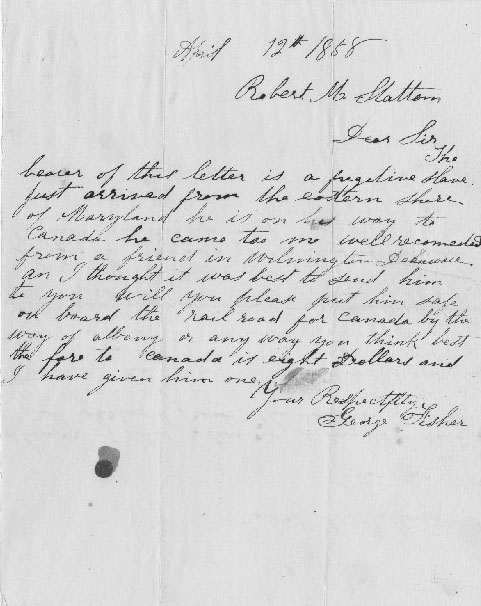 April 12th 1858
Robert M Slattom
Dear Sir
The
bearer of this letter is a fugitive slave
just arrived from the eastern shore
of Maryland he is on his way to
Canada he came too me well recomended
from a friend in Wilmington Delaware
an I thought it was best to send him
to you will you please put him safe
on board the rail road for Canada by the
way of albeny or any way you think best
the fare to canada is eight Dollars and
I have given him one
Your Respectfully
George Fisher